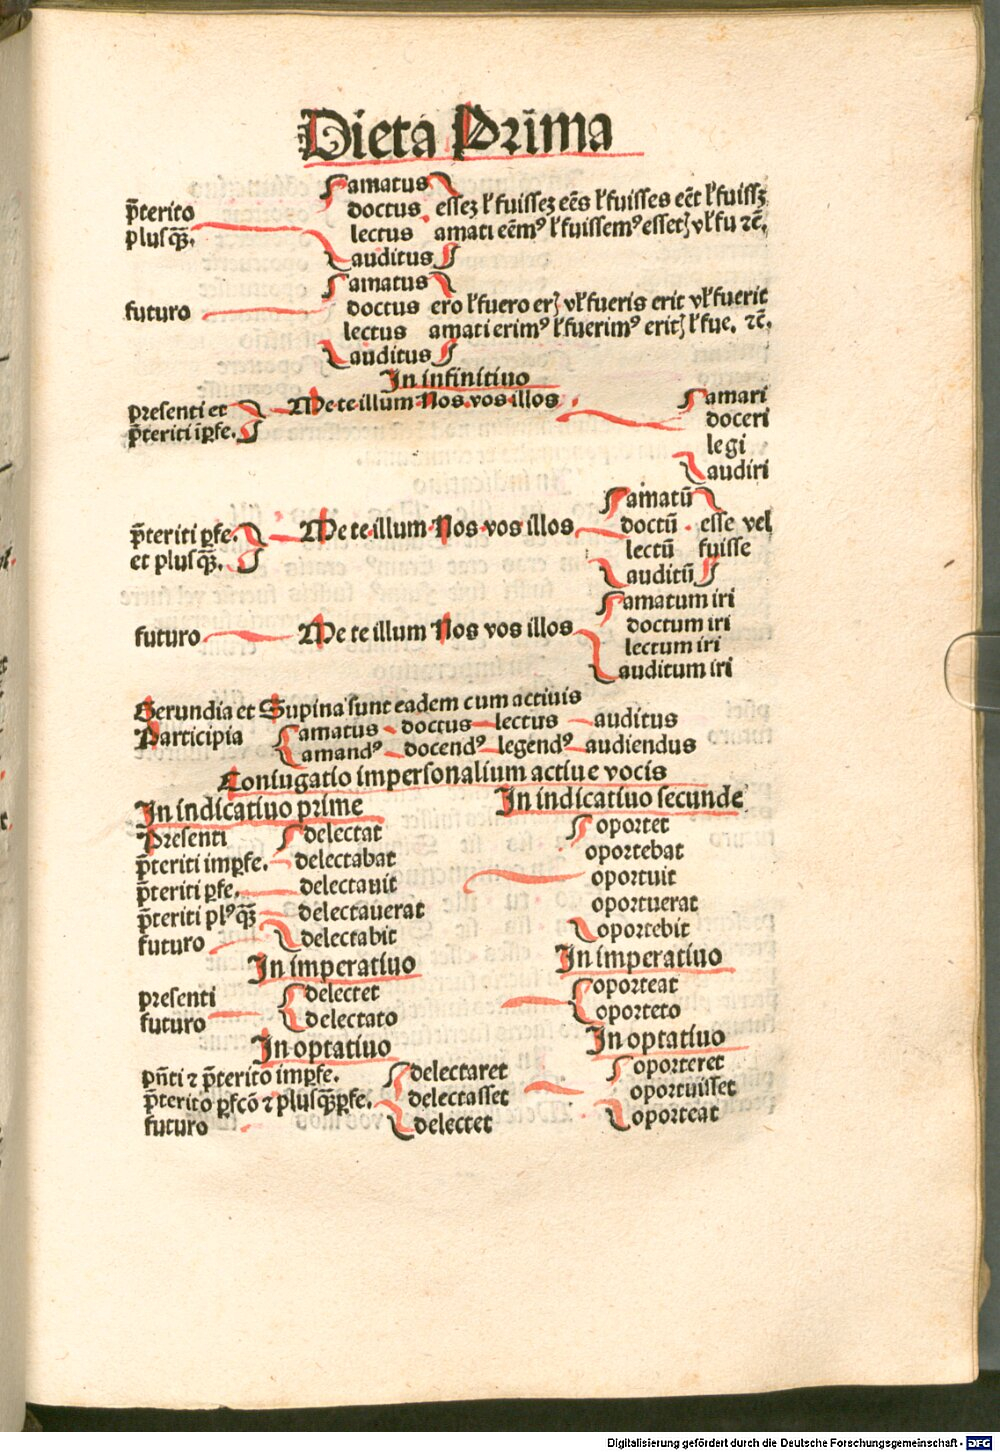 Dieta Prima
amatus
p̄terito doctus essez ł fuissez eēs ł fuisses eēt ł fuissz
plusq̄ꝫ. lectus amati eēmꝰ ł fuissemꝰ essetꝭ vł fu ⁊c̄.
auditus
amatus
futuro doctus ero ł fuero erꝭ vł fueris erit vł fuerit
lectus amati erimꝰ ł fuerimꝰ eritꝭ ł fue. ⁊c̄.
auditus
In infinitiuo
presenti et Me te illum Nos vos illos amari
p̄teriti ip̱fe. doceri
legi
audiri
amatū
p̄teriti ꝑfe. Me te illum Nos vos illos doctū esse vel
et plusq̄ꝫ. lectū fuisse
auditū
amatum iri
futuro Me te illum Nos vos illos doctum iri
lectum iri
auditum iri
Gerundia et Supina sunt eadem cum actiuis
Participia amatus doctus lectus auditus
amandꝰ docendꝰ legendꝰ audiendus
Coniugatio impersonalium actiue vocis
In indicatiuo prime In indicatiuo secunde
Presenti delectat oportet
p̄teriti imꝑfe. delectabat oportebat
p̄teriti ꝑfe. delectauit oportuit
p̄teriti plꝰq̄ꝫ delectauerat oportuerat
futuro delectabit oportebit
In imperatiuo In imperatiuo
presenti delectet oporteat
futuro delectato oporteto
In optatiuo In optatiuo
pn̄ti ⁊ p̄terito imꝑfe. delectaret oporteret
p̄terito ꝑfcō ⁊ plusq̄ꝫꝑfe. delectasset oportuisset
futuro delectet oporteat
Digitalisierung gefördert durch die Deutsche Forschungsgemeinschaft - DFG